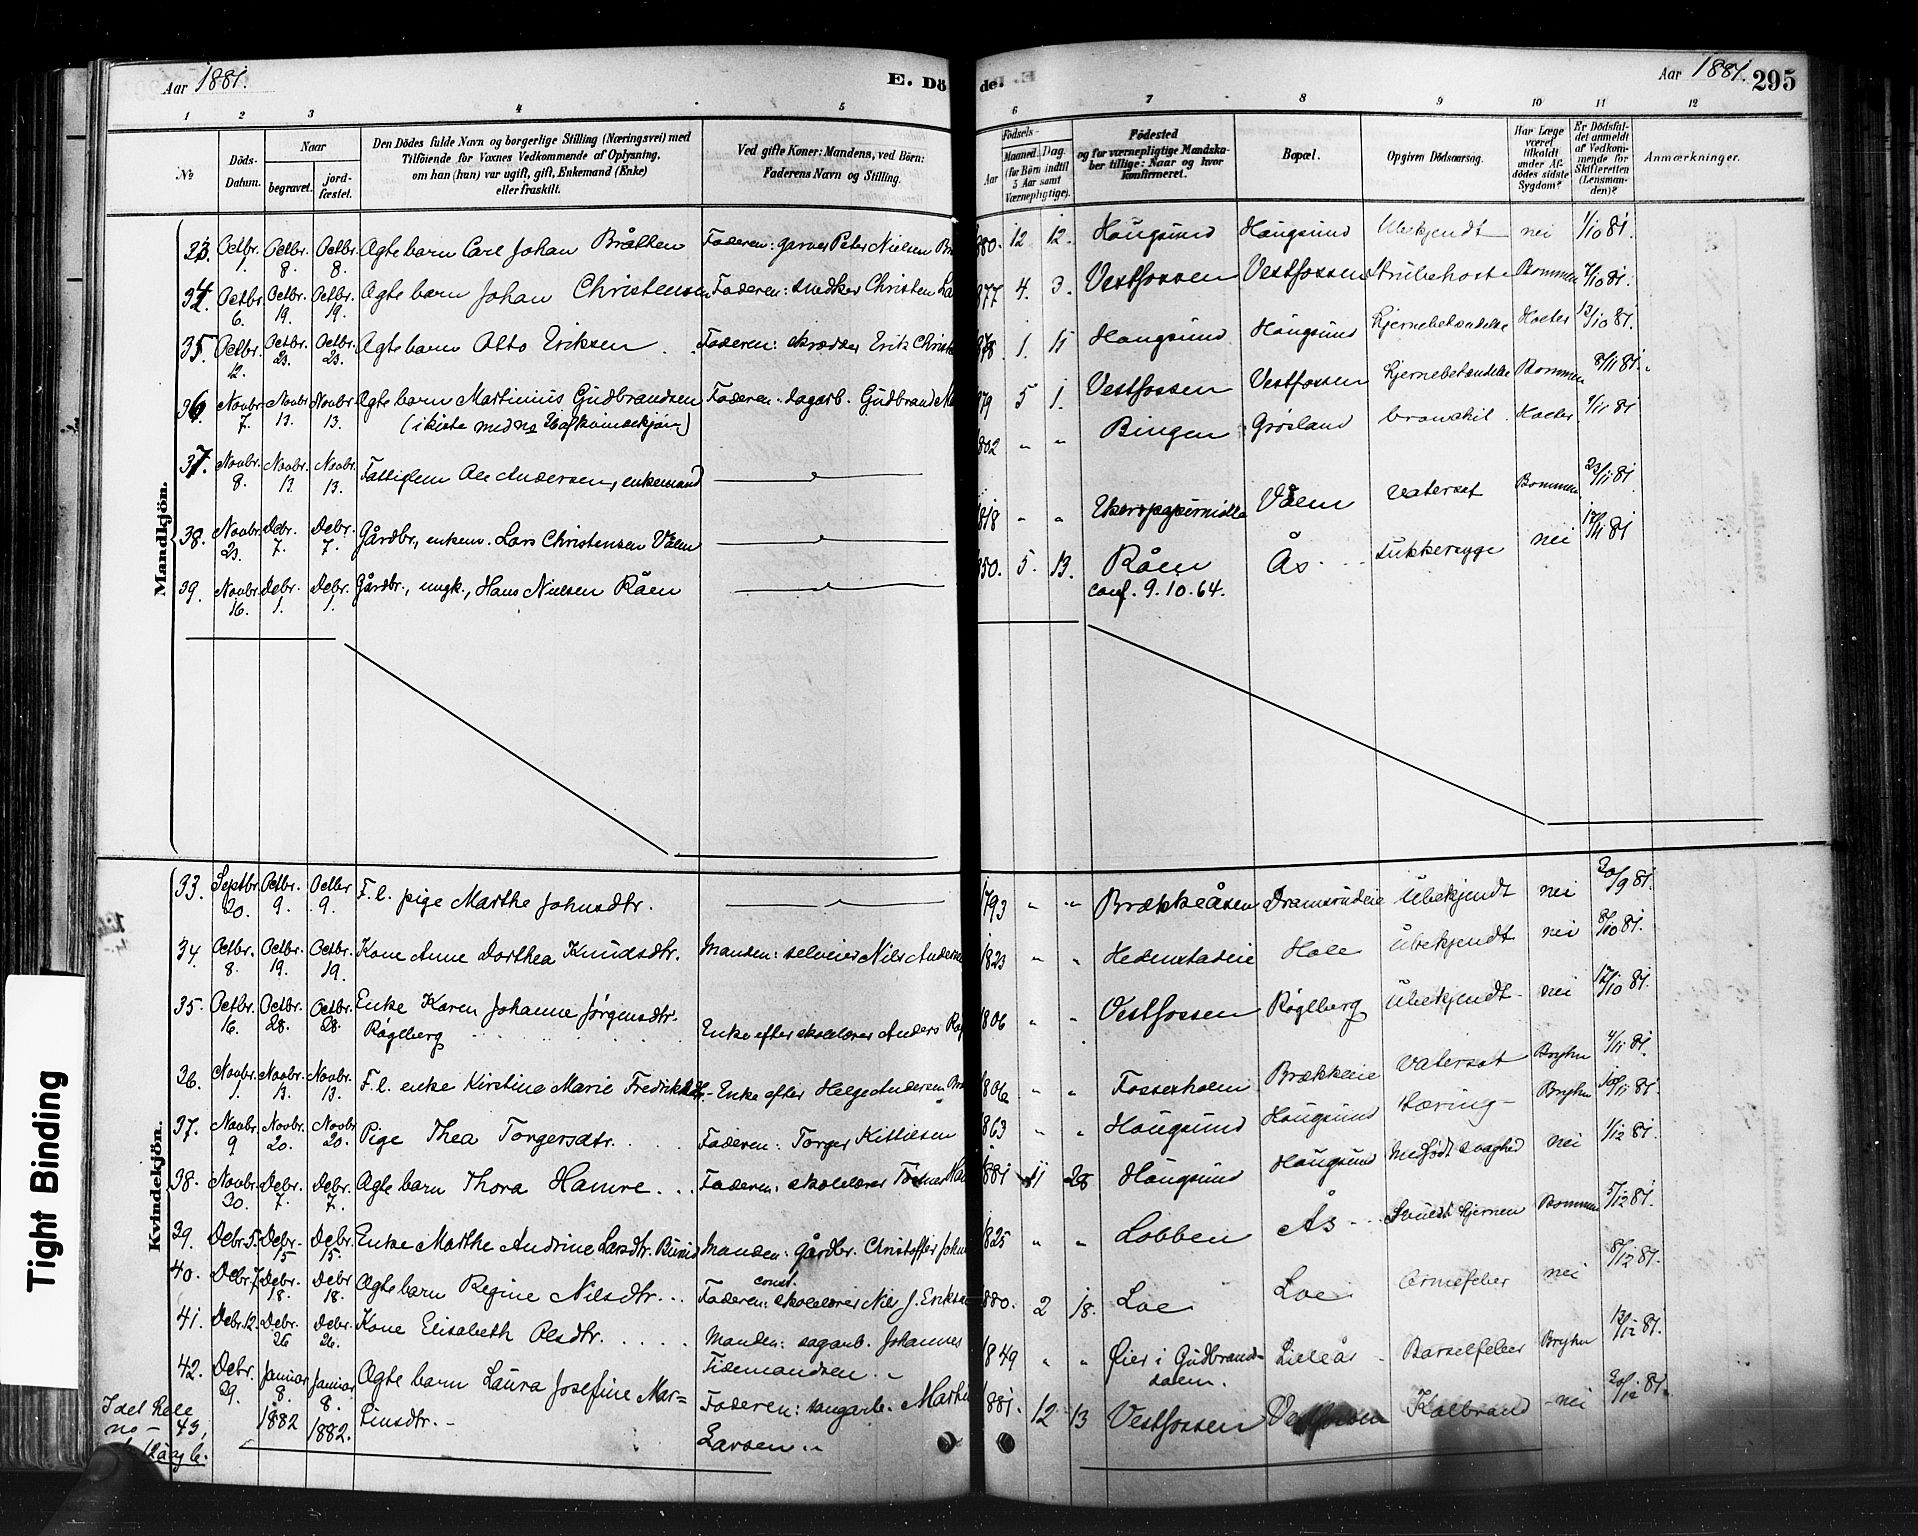 Aar 1881.
E. Dö
1 2 3 4 5
No
Döds-
Datum.
Naar
begravet.
jord-
fæstet.
Den Dödes fulde Navn og borgerlige Stilling (Næringsvei) med
Tilföiende for Voxnes Vedkommende af Oplysning,
om han (hun) var ugift, gift, Enkemand (Enke)
eller fraskilt.
Ved gifte Koner: Mandens, ved Börn:
Faderens Navn og Stilling.
Mandkjön.
Octbr. Octbr. Octbr. Ægte barn Carl Johan Bråthen Faderen: garver Peter Nielsen
1. 8. 8.
34. Octbr. Octbr. Octbr. Ægte barn Johan Christensen Faderen: snedker Christen
6. 19. 19.
35. Octbr. Octbr. Octbr. Ægte barn Otto Eriksen Faderen: skrædder Erik
12. 23. 23.
36. Novbr. Novbr. Novbr. Ægte barn Martinius Gudbrandsen Faderen: dagarb. Gudbrand
7. 13. 13. (i kiste med no 36 af kvindekjøn)
37. Novbr. Novbr. Novbr. Fattiglem Ole Andersen, enkemand
8. 13. 13.
38. Novbr. Debr. Debr. Gårdbr., enkem. Lars Christensen Vålen
23. 7. 7.
39. Novbr. Debr. Debr. Gårdbr., ungk., Hans Nielsen Råen
16. 1. 1.
Kvindekjön.
33. Septbr. Octbr. Octbr F. l. pige Marthe Johnsdtr.
20. 9. 9.
34. Octbr. Octbr. Octbr. Kone Anne Dorthea Knudsdtr. Manden: selveier Nils Anders
8. 19. 19.
35. Octbr. Octbr. Octbr. Enke Karen Johanne Jørgensdtr.
16. 28. 28. Røglberg Enke efter skolelærer Anders
36. Novbr. Novbr. Novbr. F. l. enke Kirstine Marie Enke efter Helge Andersen
1. 13. 13.
37. Novbr. Novbr. Novbr Pige Thea Torgersdtr. Faderen: Torger Kittilsen
9 20. 20.
38. Novbr. Debr. Debr. Ægte barn Thora Hamre Faderen: skolelærer
30. 7. 7.
39. Debr. 5. Debr. Debr. Enke Marthe Andrine Larsdtr. Manden: Gårdbr. Christoffer
15 15.
40. Debr. 7. Debr. Debr Ægte barn Regine Nilsdtr. Faderen: const. skolelærer Nils J. Eriksen
18. 18.
41. Debr. 12. Debr. Debr. Kone Elisabeth Olsdtr. Manden: sagarb. Johannes
26 26. Tidemandsen
42. Debr. Januar Januar Ægte barn Laura Josefine Mar=
29. 8. 8. tinsdtr. Faderen: sagarb.
1882 1882. Larsen
I det hele
no
43,
Tight Binding
de. E.
Aar 1881. 295
6 7 8 9 10 11 12
Födsels-
Aar
Maaned.
Dag.
(for Börn indtil
5 Aar samt
Værnepligtige).
Födested
og for værnepligtige Mandska-
ber tillige: Naar og hvor
konfirmeret.
Bopæl.
Opgiven Dödsaarsag.
Har Læge
været
tilkaldt
under Af-
dödes sidste
Sygdom?
Er Dödsfal-
det anmeldt
af Vedkom-
mende for
Skifteretten
(Lensman-
den)?
Anmærkninger.
880. 12 12. Haugsund Haugsund Ubekjendt nei 1/10 81.
877 4. 3. Vestfossen Vestfossen Strubehoste Bommen 7/10 81.
878. 1. 11 Haugsund Haugsund Hjernebetændelse 13/10 81.
879 5 1. Vestfossen Vestfossen Hjernebetændelse Bommen 8/11 81.
802 " " Bingen Grøsland bronchit 9/11 81
1818 " " Ekers papirmølle Vålen Vatersot Bommen 23/11 81
850. 5. 13. Råen Ås Sukkersyge nei 17/11 81
conf. 9. 10. 64.
1793 " " Brækkeåsen Dramsrudeie Ubekjendt nei 20/9 81.
1823 " " Hedenstadeie Hole Ubekjendt nei 8/10 81.
1806 " " Vestfossen Røglberg Ubekjendt nei 17/10 81.
1806 " " Fossesholm Brækkeeie Vatersot Bryhn 4/11 81.
1863 " " Haugsund Haugsund Tæring Bryhn 10/11 81.
1881 11 28 Haugsund Haugsund Medfødt svaghed nei 1/12 81.
1825 " " Lobben Ås Bommen 5/12 81.
880. 2 18. Loe Loe nei 8/12 81.
1849 " " Øier i Gudbrands- Lilleås Barselfeber Bryhn 13/12 81.
dalen.
1881. 12 13 Vestfossen Vestfossen Koldbrand nei 30/12 81.